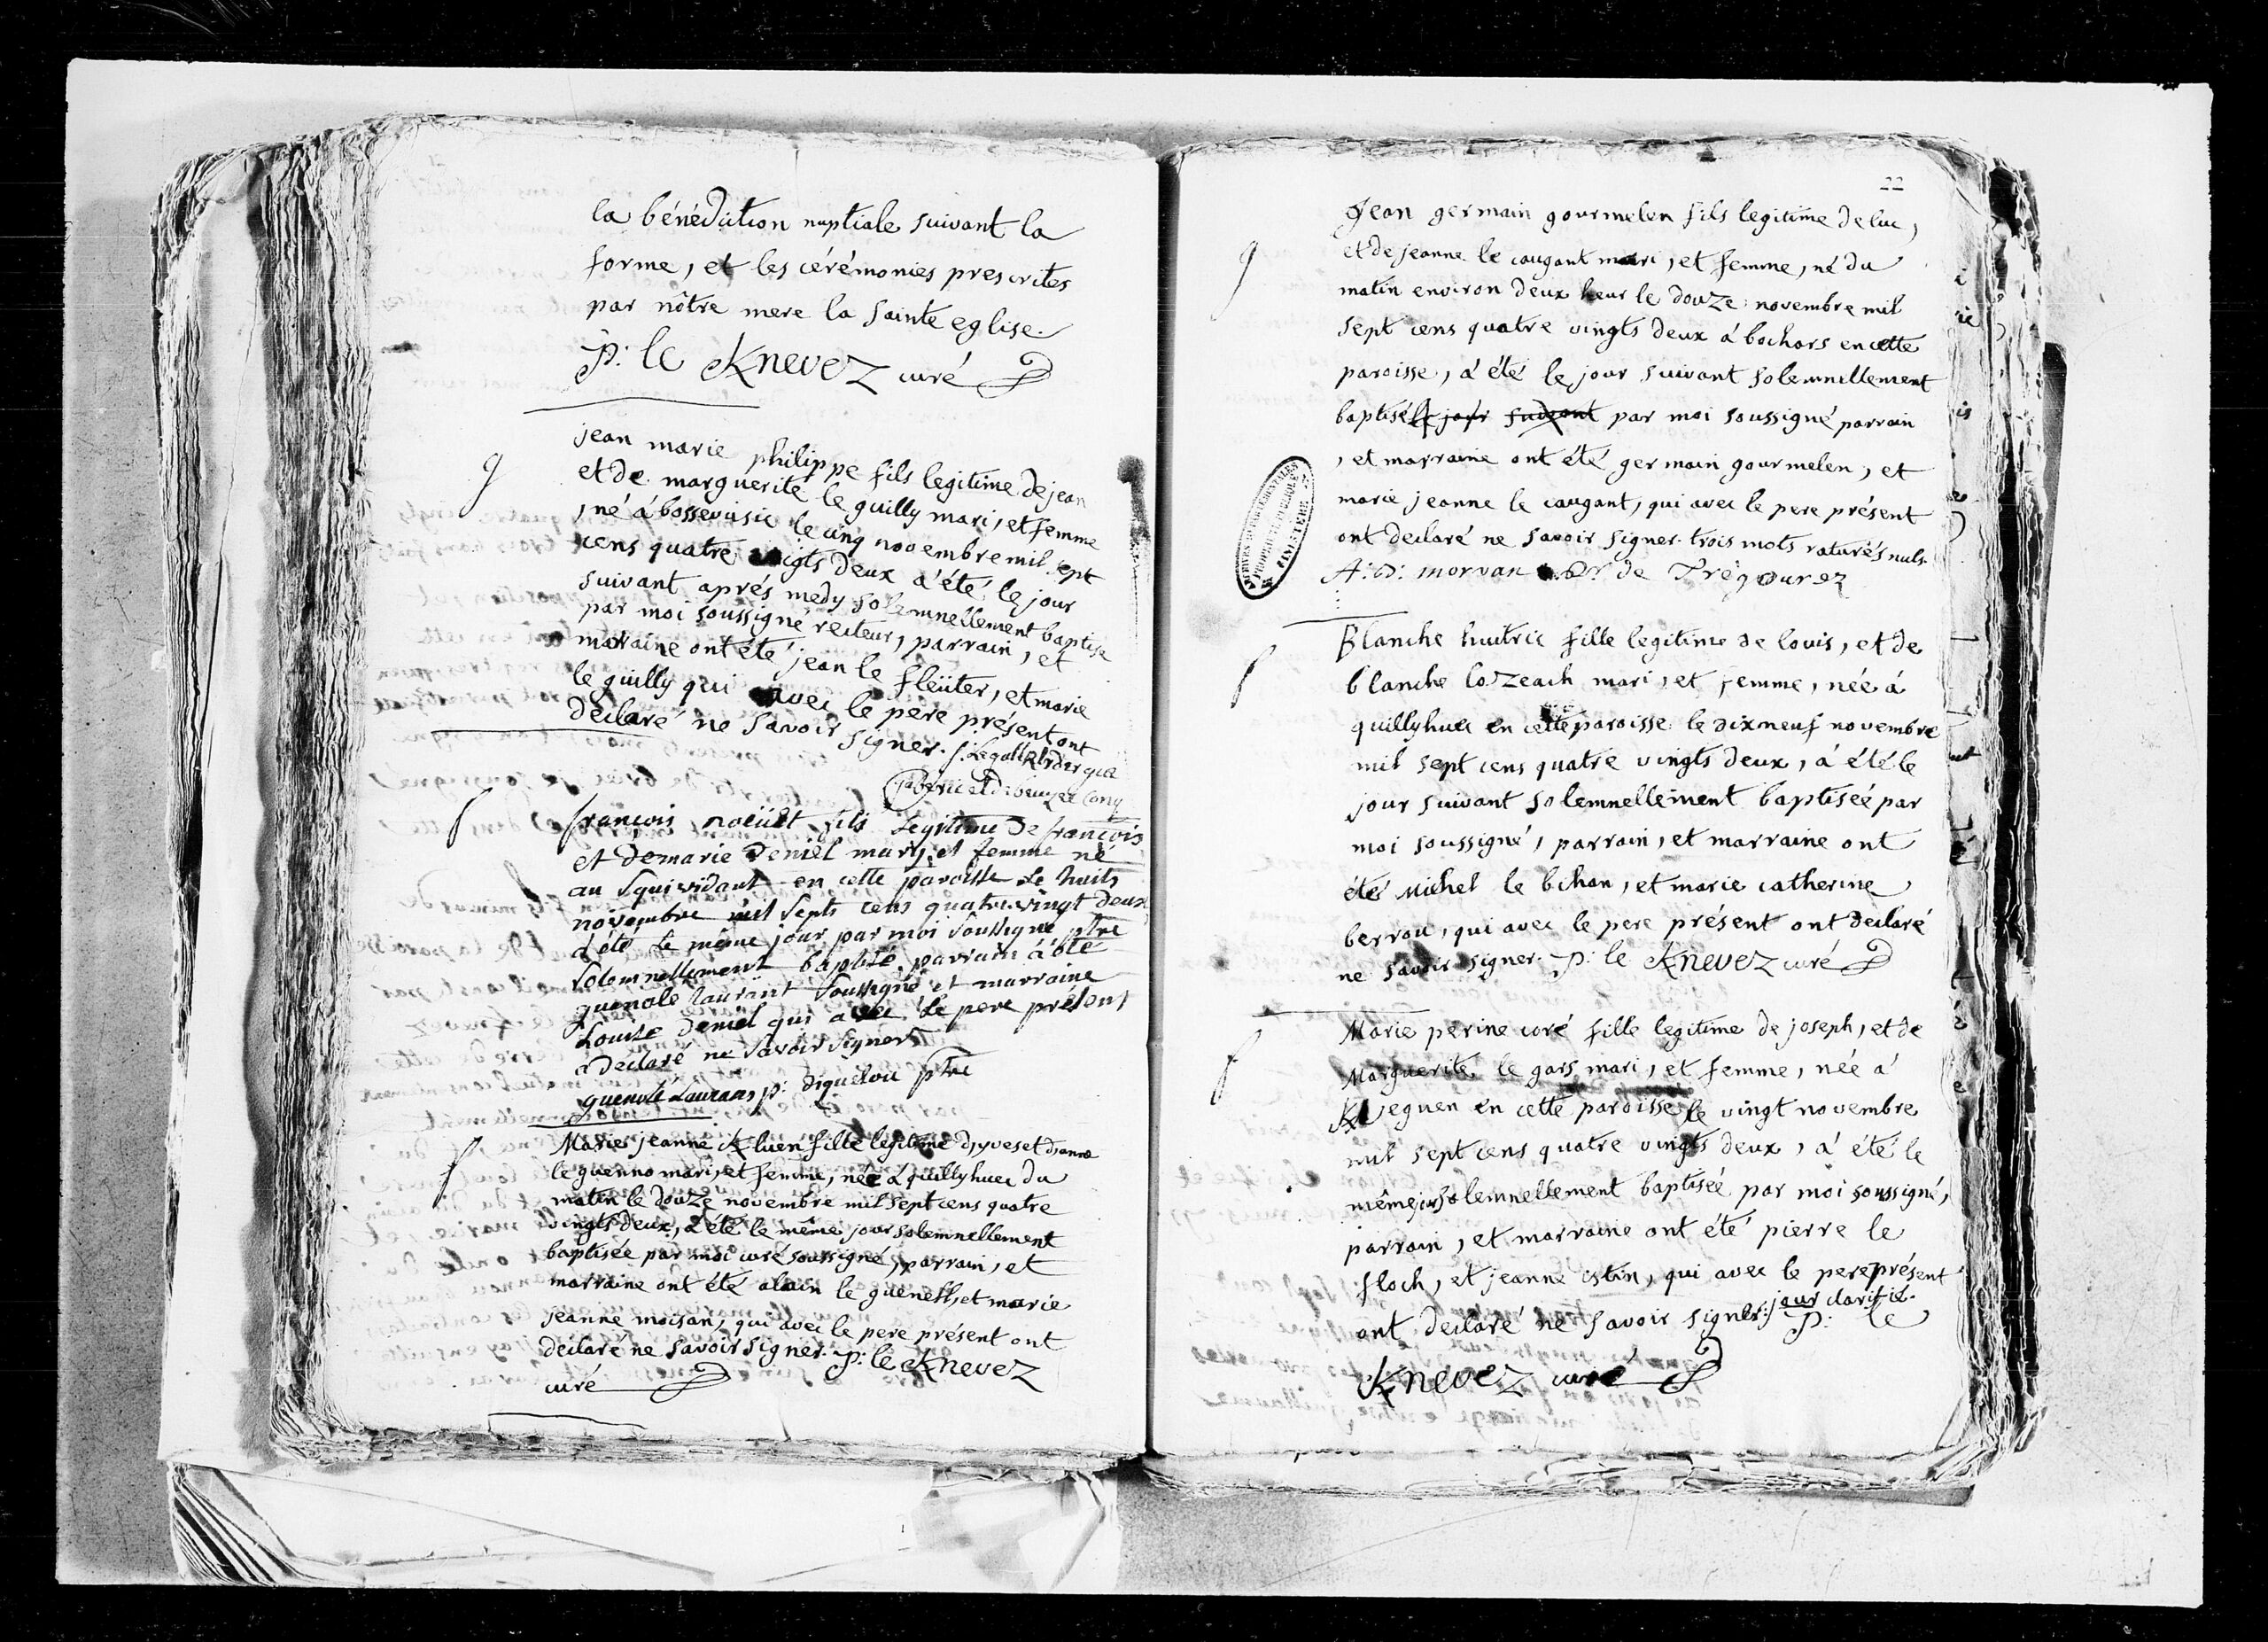 la bénédiction nuptiale suivant la
forme, et les cérémonies prescrites
par nôtre mere la sainte eglise.
p: le Knevez curé
jean marie philippe fils legitime de jean
et de marguerite le quilly mari, et femme
, né á le cinq novembre mil sept
cens quatre vingts deux a été le jour
suivant aprés medy solemnellement baptise
par moi soussigné recteur, parrain, et
marraine ont été jean le fleüter, et marie
le quilly qui avec le pere présent ont
declaré ne savoir signer.
françois fils legitime de françois
et de marie deniel mary et femme né
au en cette paroisse le huits
novembre mil septs cens quatre-vingt deux
a été le même jour par moi soussigné ptre
solemnellement baptisé, parrain á été
guenole laurant soussigné et marraine
Louise deniel qui avec le pere présent
a declaré ne savoir signer
guenole Laurans p: diquelou ptre
Marie jeanne Kluen fille legitime d'yves et d'anne
le guenno mari, et femme, née á quillyhuec du
matin le douze novembre mil sept cens quatre
vingts deux, á été le même jour solemnellement
baptisée par moi curé soussigné, parrain, et
marraine ont été alain le et marie
jeanne moisan, qui avec le pere présent ont
declaré ne savoir signer. p: le Knevez
curé
22
Jean germain gourmelen fils legitime de luc,
et de jeanne le caugant mari, et femme, né du
matin environ deux heur le douze novembre mil
sept cens quatre vingts deux á bochars en cette
paroisse, á été le jour suivant solemnellement
baptisé le jour suivant par moi soussigné parrain
, et marraine ont été germain gourmelen, et
marie jeanne le caugant, qui avec le pere présent
ont declaré ne savoir signer. trois mots raturés nuls.
A: D: morvan de Trégourez
Blanche huitric fille legitime de louis, et de
blanche lozeach mari, et femme, née á
quillyhuec en cette paroisse le dixneuf novembre
mil sept cens quatre vingts deux, á été le
jour suivant solemnellement baptisée par
moi soussigné, parrain, et marraine ont
été Michel le bihan, et marie catherine
berrou, qui avec le pere présent ont declaré
ne savoir signer. p: le Knevez curé
Marie perine coré fille legitime de joseph, et de
Marguerite le gars mari, et femme, née á
Kveguen en cette paroisse le vingt novembre
mil sept cens quatre vingts deux, á été le
même jour solemnellement baptisée par moi soussigné,
parrain, et marraine ont été pierre le
floch, et jeanne istin, qui avec le pere présent
ont declaré ne savoir signer: jour clarifié. p: le
Knevez curé